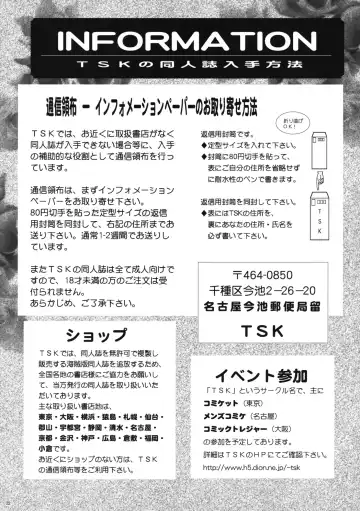 INFORMATION
TSKの同人誌入手方法
通信領布 ー インフォメーションペーパーのお取り寄せ方法
TSKでは、お近くに取扱書店がなく
同人誌が入手できない場合等に、入手
の補助的な役割として通信領布を行っ
ています。
通信領布は、まずインフォメーション
ペーパーをお取り寄せ下さい。
80円切手を貼った定型サイズの返信
用封筒を同封して、右記の住所までお
送り下さい。通常1-2週間でお送りし
ています。
またTSKの同人誌は全て成人向けで
すので、18才未満の方のご注文は受
付られません。
あらかじめ、ご了承下さい。
返信用封筒です。
◆定型サイズを入れて下さい。
◆封筒に80円切手を貼って、
表にご自分の住所を省略せず
に耐水性のペンで書きます。
折り曲げ
OK!
返信用封筒を同封して下さい。
◆表にはTSKの住所を、
裏にあなたの住所・氏名を
必ず書いて下さい。
TSK
〒464-0850
千種区今池2-26-20
名古屋今池郵便局留
TSK
ショップ
TSKでは、同人誌を無許可で複製し
販売する海賊版同人誌を追放するため、
全国各地の書店様にご協力をお願いし
て、当方発行の同人誌を取り扱いいた
だいております。
主な取り扱い書店地は、
東京・大阪・横浜・猿島・札幌・仙台・
郡山・宇都宮・静岡・清水・名古屋・
京都・金沢・神戸・広島・倉敷・福岡・
小倉です。
お近くにショップのない方は、TSK
の通信領布等をご利用下さい。
イベント参加
「TSK」というサークル名で、主に
コミケット(東京)
メンズコミケ(名古屋)
コミックトレジャー(大阪)
の参加を予定しております。
詳細はTSKのHPにてご確認下さい。
http://www.h5.dion.ne.jp/~tsk